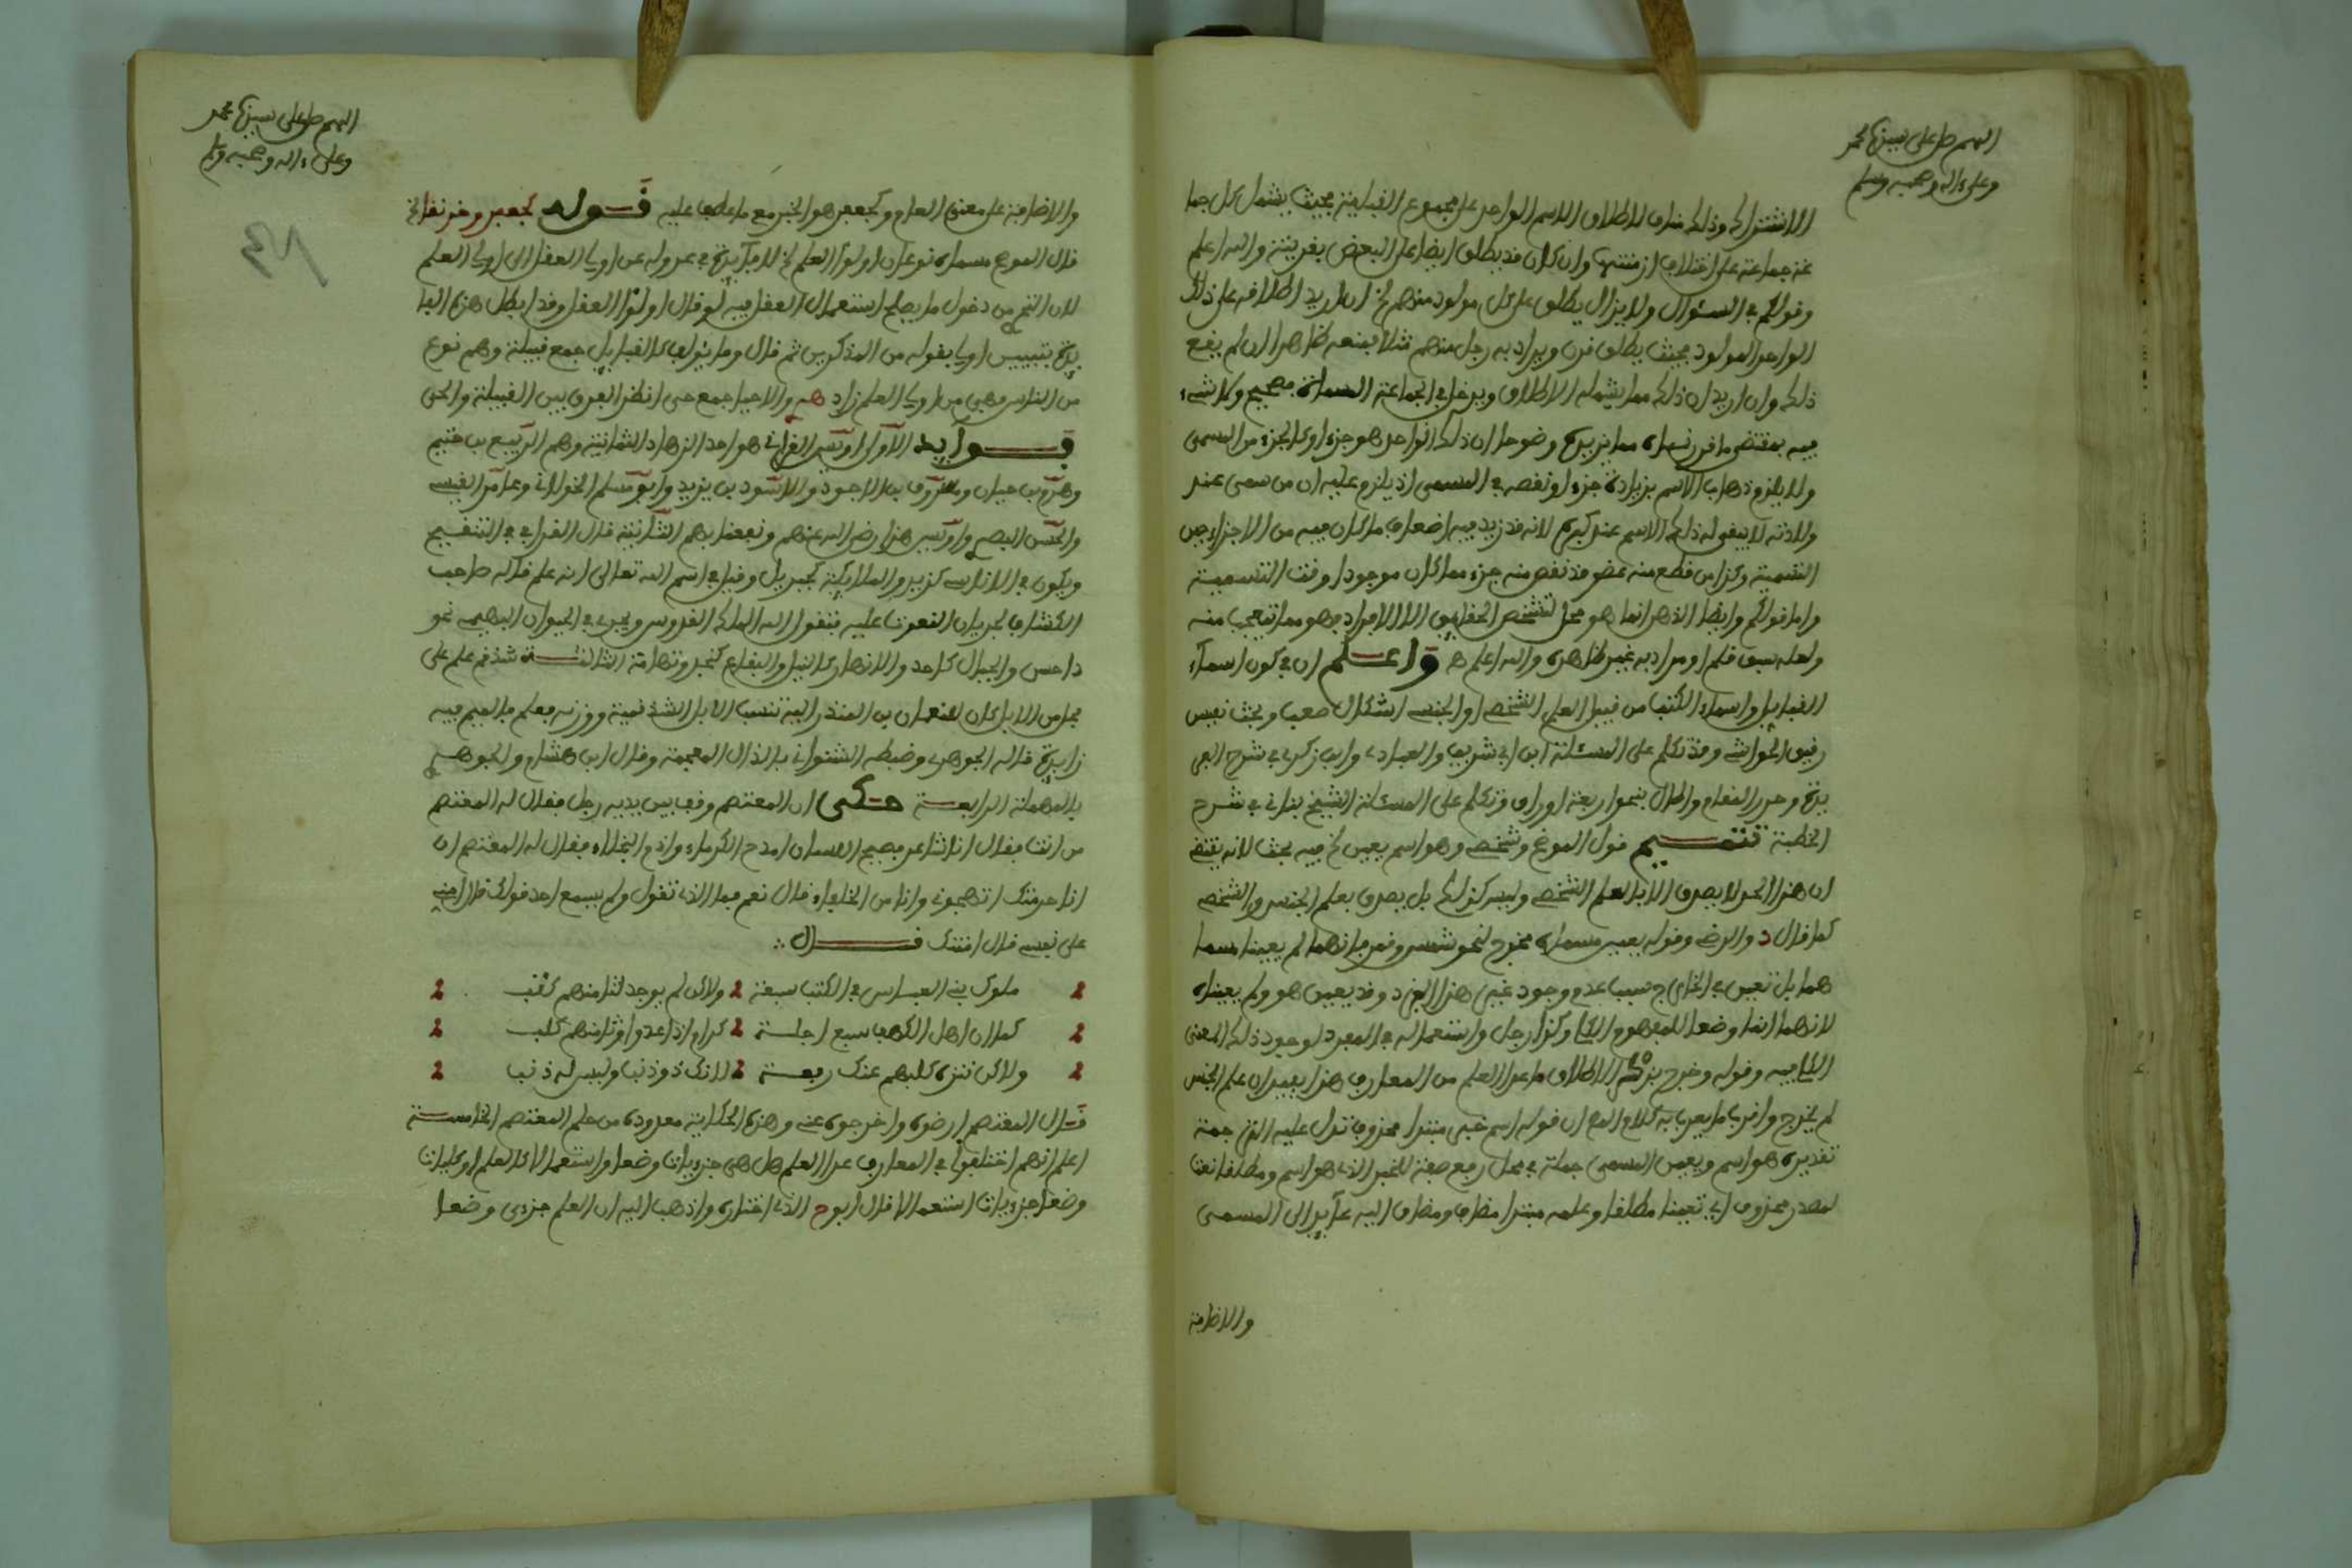 اللهم صل على نبينا محمد
وعلى ءاله وصحبه وسلم
الاشتراك وذلك مناف لاطلاق الاسم الواحد على مجموع القبيلة بحيث يشمل كل جما
عة جماعة على اختلاف ازمنتها وان كان قد يطلق ايضا على البعض بقرينة والله اعلم
وقولكم في السؤال ولا يزال يطلق على كل مولود منهم الخ ان اريد اطلاقه على ذلك
الواحد المولود بحيث يطلق قرن ويراد به رجل منهم مثلا فمنعه ظاهر اذ لم يقع
ذلك وان اريد ان ذلك مما يشمله الاطلاق ويدخل في الجماعة المسماة فصحيح ولا شيء
فيه بمقتضى ما قررناه مما يزيدك وضوحا ان ذلك الواحد هو جزء او كالجزء من المسمى
ولا يلزم ذهاب الاسم بزيادة جزء او نقصه في المسمى اذ يلزم عليه ان من سمى عند
ولادته لا يبقى له ذلك الاسم عند كبره لانه قد زيد فيه اضعاف ما كان فيه من الاجزاء حين
التسمية وكذا من قطع منه عضو قد نقص منه جزء مما كان موجودا وقت التسمية
واما قولكم وايضا الذهن انما هو محل تشخص الحقايق لا الافراد فهو مما يتعجب منه
ولعله سبق قلم او مراد به غير ظاهره والله اعلم ه واعلم ان في كون اسماء
القبايل واسماء الكتب من قبيل العلم الشخصي او الجنسي اشكال صعب وبحث نفيس
رقيق الحواشي وقد تكلم على المسئلة ابن ابي شريف والعبادي وابن زكري في شرح الفر
يدة وحرر المقام واطال بنحو اربعة اوراق وتكلم على المسئلة الشيخ بناني في شرح
الخطبة تتميم قول الموضح وشخصي وهو اسم يعين الخ فيه بحث لانه يقتضي
ان هذا الحد لا يصدق الا بالعلم الشخصي وليس كذلك بل يصدق بعلم الجنس والشخص
كما قال د والرضي وقوله يعين مسماه مخرج لنحو شمس وقمر فانهما لم يعينا مسما
هما بل تعين في الخارج سبب عدم وجود غير هذا الفرد وقد يعين هو ولم يعيناه
لانهما انما وضعا للمفهوم الكلي وكذا رجل واستعماله في المفرد لوجود ذلك المعنى
الكلي فيه وقوله وخرج بذكر الاطلاق ما عدا العلم من المعارف هذا يفيد ان علم الجنس
لم يخرج واقرب ما يعرب به كلام المص ان قوله اسم خبر مبتدا محذوف تدل عليه الترجمة
تقديره هو اسم ويعين المسمى جملة في محل رفع صفة للخبر الذي هو اسم ومطلقا نعت
لمصدر محذوف اي تعيينا مطلقا وعلمه مبتدا مضاف ومضاف اليه عايد الى المسمى
والاضافة
اللهم صل على سيدنا محمد
وعلى ءاله وصحبه وسلم
والاضافة على معنى اللام وكجعفر هو الخبر مع ما عطف عليه قوله كجعفر وخرنقا الخ
قال الموضح مسماه نوعان اولوا العلم الخ لا فايدة في عدوله عن اولي العقل الى اولي العلم
من الناس فهي من اولي العلم زاد هم والاحيا جمع حي انظر الفرق بين القبيلة والحي
فوايد الاولى اويس القرني هو احد الزهاد الثمانية وهم الربيع بن خثيم
وهرم بن حيان ومسروق بن الاجدع والاسود بن يزيد وابو مسلم الخولاني وعامر القيسي
والحسن البصري واويس هذا رضي الله عنهم ونفعنا بهم الثانية قال القرافي في التنقيح
ويكون في الاناسي كزيد والملايكة كجبريل وقيل في اسم الله تعالى انه علم قاله صاحب
الكشاف لجريان النعوت عليه فتقول الله الملك القدوس ويجري في الحيوان البهيمي نحو
داحس والجبال كاحد والانهار كالنيل والبقاع كنجد وتهامة الثالثة شذقم علم على
فحل من الابل كان للنعمان بن المنذر اليه تنسب الابل الشذقمية ووزنه فعلم فالميم فيه
زايدة قاله الجوهري وضبطه الشنواني بالذال المعجمة وقال ابن هشام والجوهري
بالمهملة الرابعة حكى ان المعتصم وقف بين يديه رجل فقال له المعتصم
من انت فقال انا شاعر فصيح اللسان امدح الكرماء واذم البخلاء فقال له المعتصم ان
انا حرمتك اتهجوني وانا من الخلفاء قال نعم فما الذي تقول ولم يسمع احد قولك قال امني
على نفسي قال امنتك قال
ملوك بني العباس في الكتب سبعة ولاكن لم يوجد لثامنهم كتب
كما ان اهل الكهف سبع اجلة كرام اذا عدوا وثامنهم كلب
ولاكن تنزه كلبهم عنك رفعة لانك ذو ذنب وليس له ذنب
قال المعتصم ارضوه واخرجوه عني وهذه الحكاية معدودة من حلم المعتصم الخامسة
اعلم انهم اختلفوا في المعارف عدا العلم هل هي جزييات وضعا واستعمالا كالعلم او كليات
وضعا جزييات استعمالا قال ابو ح الذي اختاره واذهب اليه ان العلم جزءي وضعا